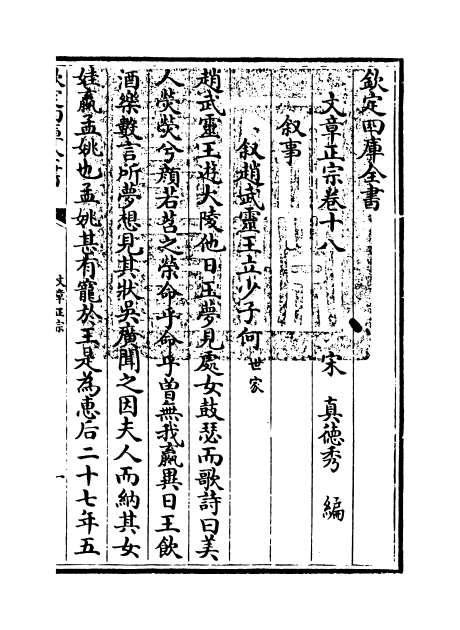 欽定四庫全書
文章正宗卷十八
宋 真德秀 編
叙事
叙趙武靈王立少子何 世家
趙武靈王遊大陵他日王夢見處女鼓瑟而歌詩曰美
人熒熒兮顔若苕之榮命乎命乎曽無我嬴異日王飲
酒樂數言所夢想見其狀吳廣聞之因夫人而納其女
娃嬴孟姚也孟姚甚有寵於王是為惠后二十七年五
欽定四庫全書
文章正宗
一